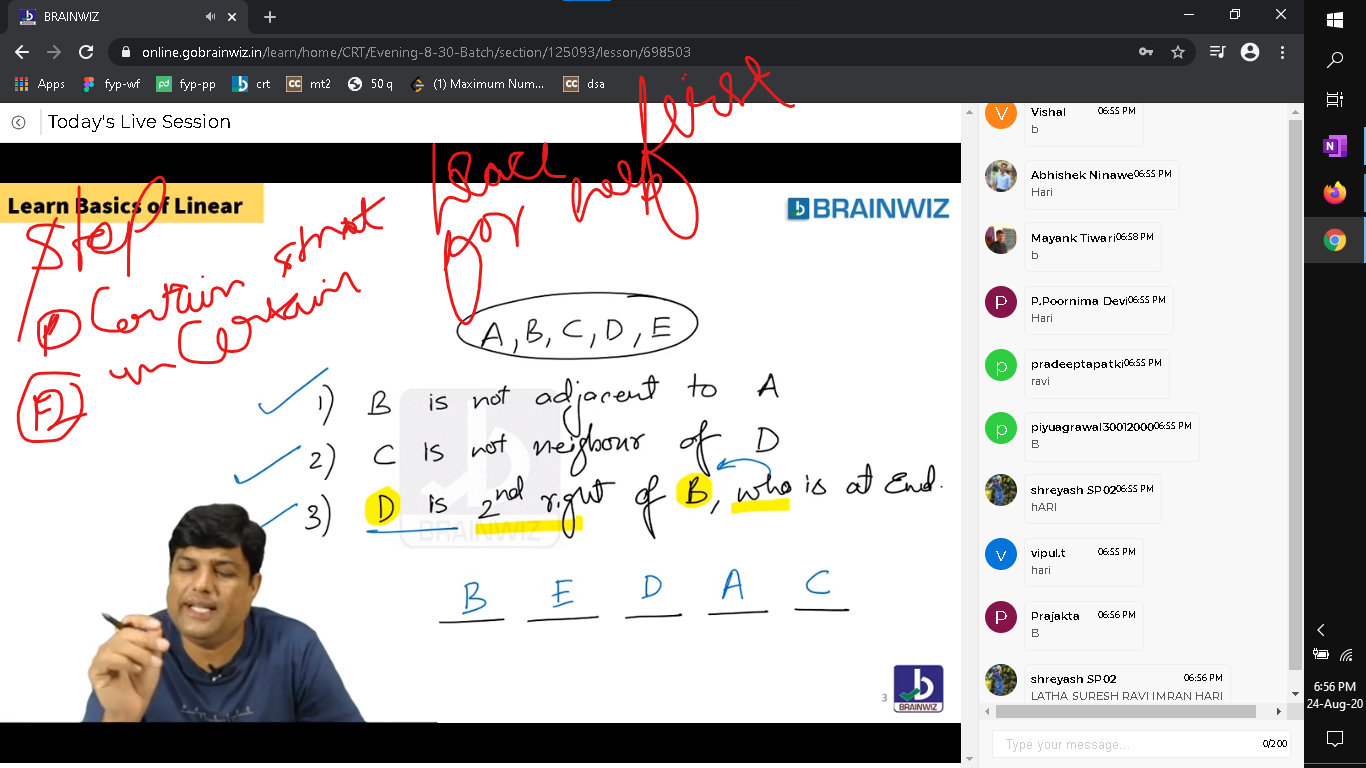 BRAINWIZ
online.gobrainwiz.in/learn/home/CRT/Evening-8-30-Batch/section/125093/lesson/698503
Apps fyp-wf fyp-pp crt mt2 50 q (1) Maximum Num... dsa
Today's Live Session
Learn Basics of Linear
BRAINWIZ
first
for
Step
1) Certain
un Certain
A, B, C, D, E
1) B is not adjacent to A
2) C is not neigbour of D
3) D is 2nd right of B, who is at End.
BRAINWIZ
B E D A C
3
BRAINWIZ
V Vishal 06:55 PM
b
Abhishek Ninawe 06:55 PM
Hari
Mayank Tiwari 06:58 PM
b
P P.Poornima Devi 06:55 PM
Hari
p pradeeptapatki 06:55 PM
ravi
p piyuagrawal30012000 06:55 PM
B
shreyash SP02 06:55 PM
hARI
v vipul.t 06:55 PM
hari
P Prajakta 06:56 PM
B
shreyash SP02 06:56 PM
LATHA SURESH RAVI IMRAN HARI
Type your message... 0/200
6:56 PM
24-Aug-20